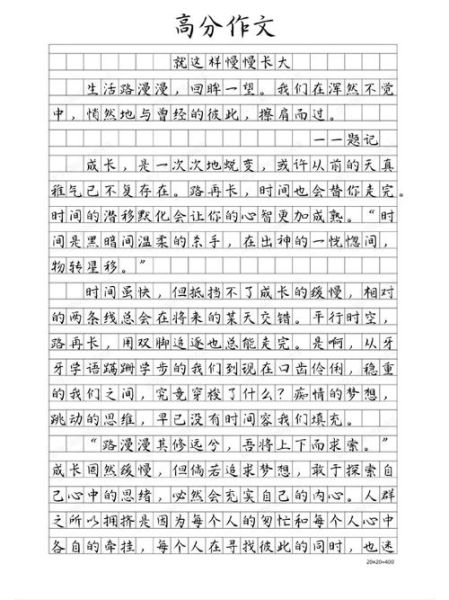 高分作文
就这样慢慢长大
生活路漫漫，回眸一望。我们在浑然不觉
中，悄然地与曾经的彼此，擦肩而过。
——题记
成长，是一次次地蜕变，或许从前的天真
稚气已不复存在。路再长，时间也会替你走完。
时间的潜移默化会让你的心智更加成熟。“时
间是黑暗间温柔的杀手，在出神的一恍惚间，
物转星移。”
时间虽快，但抵挡不了成长的缓慢，相对
的两条线总会在将来的某天交错。平行时空，
路再长，用双脚追逐也总能走完。是啊，从牙
牙学语蹒跚学步的我们到现在口齿伶俐，稳重
的我们之间，究竟穿梭了什么？痴情的梦想，
跳动的思维，早已没有时间容我们填充。
“路漫漫其修远兮，吾将上下而求索。”
成长固然缓慢，但倘若追求梦想，敢于探索自
己心中的思绪，必然会充实自己的内心。人群
之所以拥挤是因为每个人的匆忙和每个人心中
各自的牵挂，每个人在寻找彼此的同时，也迷
20×20=400